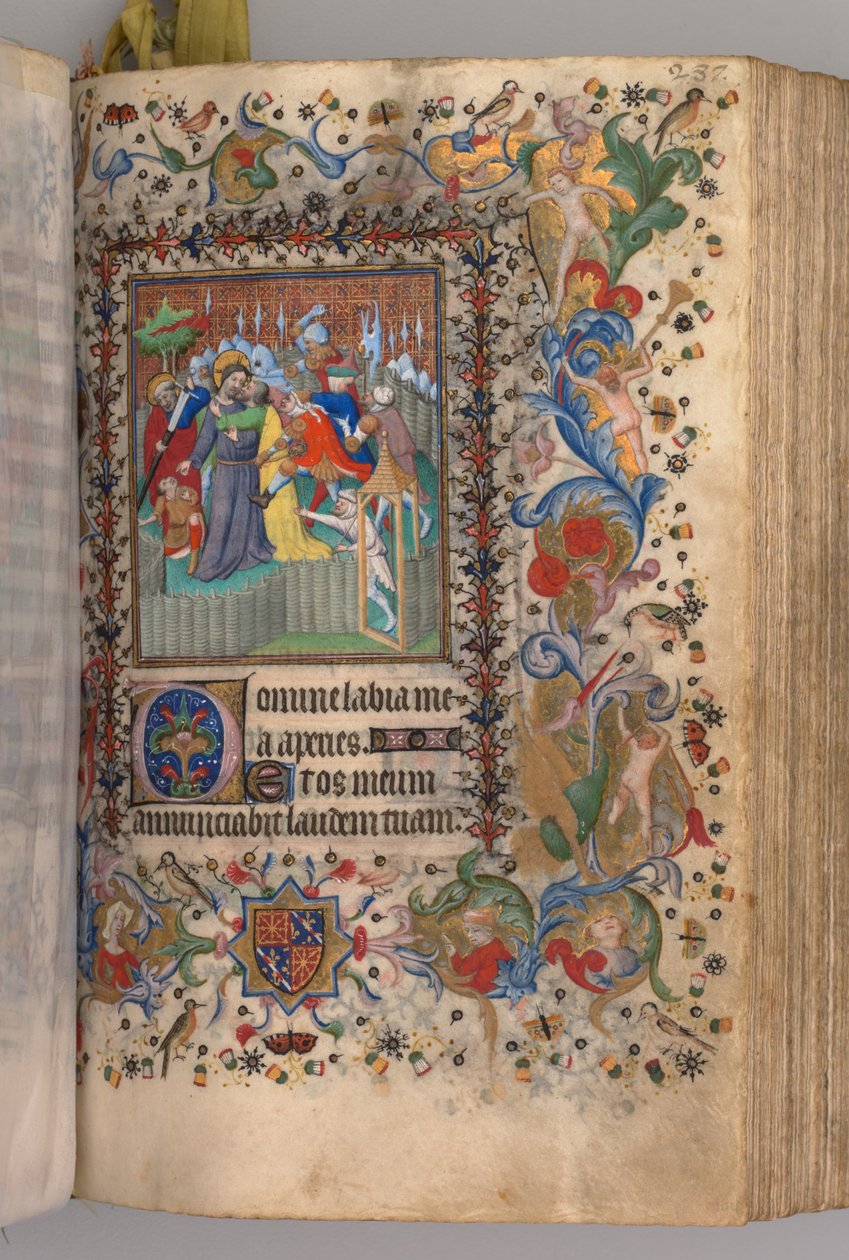 237.
Domine labia me-
a aperies.
Et os meum
annunciabit laudem tuam.